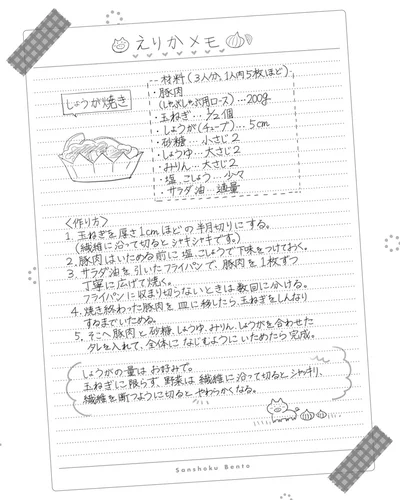 えりかメモ
しょうが焼き
材料(3人分、1人内5枚ほど)
・豚肉
(しゃぶしゃぶ用ロース)…200g
・玉ねぎ…1/2個
・しょうが(チューブ)…5cm
・砂糖…小さじ2
・しょうゆ…大さじ2
・みりん…大さじ2
・塩、こしょう…少々
・サラダ油…適量
〈作り方〉
1. 玉ねぎを厚さ1cmほどの半月切りにする。
(繊維に沿って切るとシャキシャキです。)
2. 豚肉はいためる前に塩、こしょうで下味をつけておく。
3. サラダ油を引いたフライパンで、豚肉を1枚ずつ
丁寧に広げて焼く。
フライパンに収まり切らないときは数回に分ける。
4. 焼き終わった豚肉を皿に移したら、玉ねぎをしんなり
するまでいためる。
5. そこへ豚肉と砂糖、しょうゆ、みりん、しょうがを合わせた
タレを入れて、全体になじむようにいためたら完成。
しょうがの量はお好みで。
玉ねぎに限らず、野菜は繊維に沿って切ると、シャキリ、
繊維を断つように切るとやわらかくなる。
Sanshoku Bento